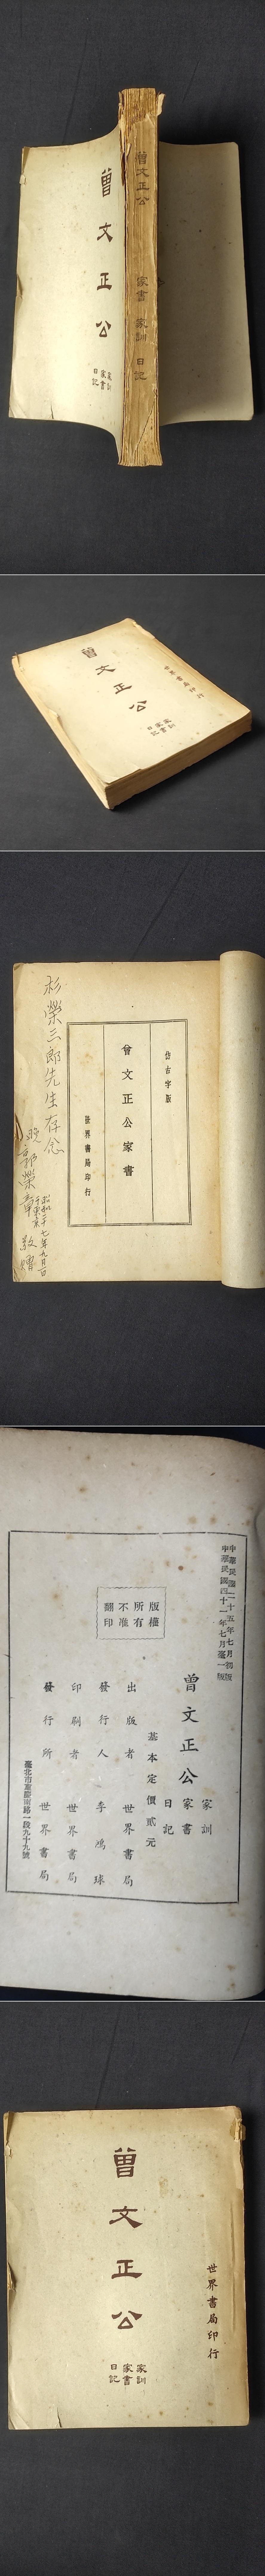 曾文正公
家訓
家書
日記
曾文正公 家書 家訓 日記
曾文正公
家訓
家書
日記
世界書局印行
仿古字版
曾文正公家書
世界書局印行
杉榮三郎先生存念
晚
郭榮章 敬贈
昭和二十七年九月一日
于東京
中華民國二十五年七月初版
中華民國四十一年七月臺一版
版權
所有
不准
翻印
曾文正公
家訓
家書
日記
基本定價貳元
出版者 世界書局
發行人 李鴻球
印刷者 世界書局
發行所 世界書局
臺北市重慶南路一段九十九號
世界書局印行
曾文正公
家訓
家書
日記